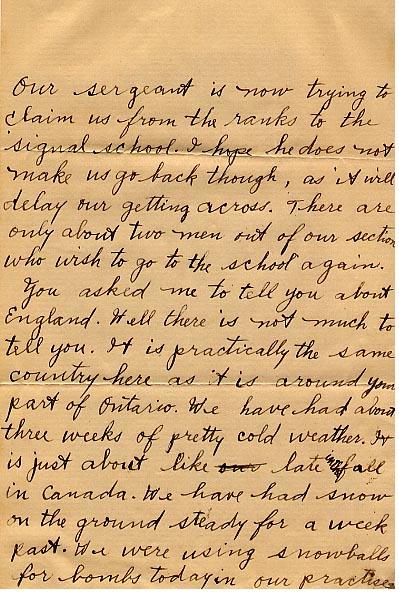 Our sergeant is now trying to
claim us from the ranks to the
signal school. I hope he does not
make us go back though, as it will
delay our getting across. There are
only about two men out of our section
who wish to go to the school again.
You asked me to tell you about
England. Well there is not much to
tell you. It is practically the same
country here as it is around your
part of Ontario. We have had about
three weeks of pretty cold weather. It
is just about like late fall
in Canada. We have had snow
on the ground steady for a week
past. We were using snowballs
for bombs today in our practise